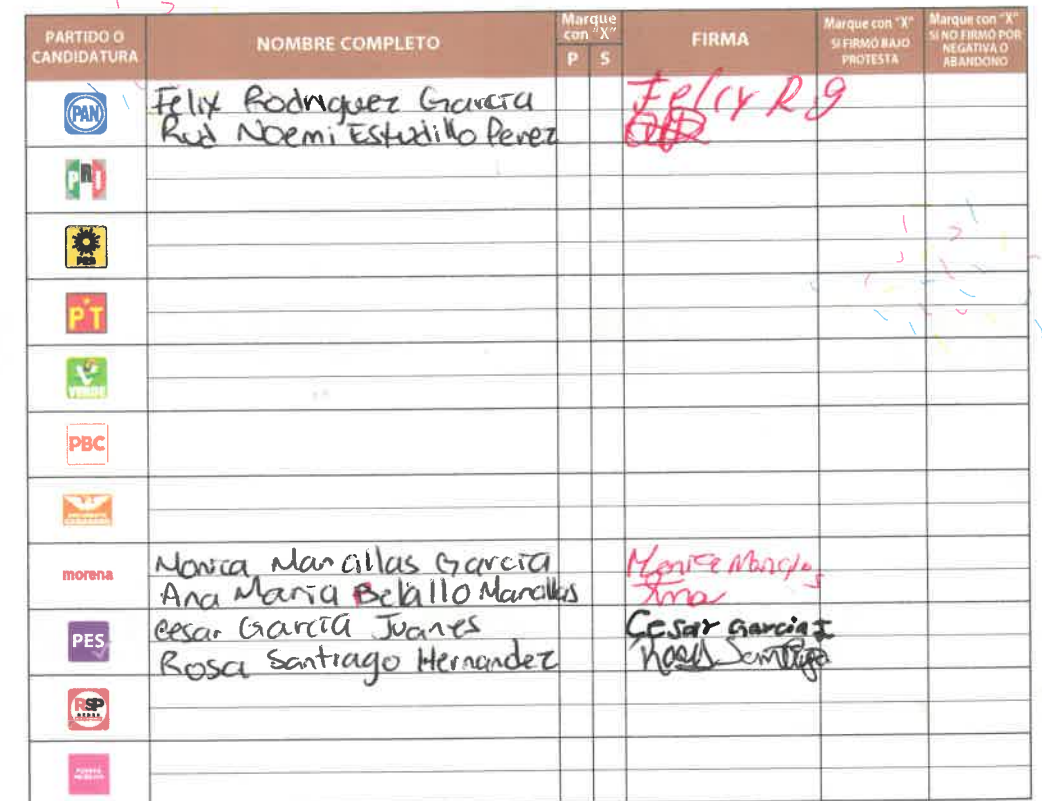 PARTIDO O CANDIDATURA
NOMBRE COMPLETO
Marque con "X"
P S
FIRMA
Marque con "X" SI FIRMÓ BAJO PROTESTA
Marque con "X" SI NO FIRMÓ POR NEGATIVA O ABANDONO
PAN Felix Rodriguez García Felix R g
Rud Noemi Estudillo Perez
PRI
PRD
PT
VERDE
PBC
morena Monica Mancillas García Monica
Ana Maria Mancillas Ana
PES Cesar García Juanes Cesar Garcia J
Rosa Santiago Hernandez Rosa Santiago
RSP